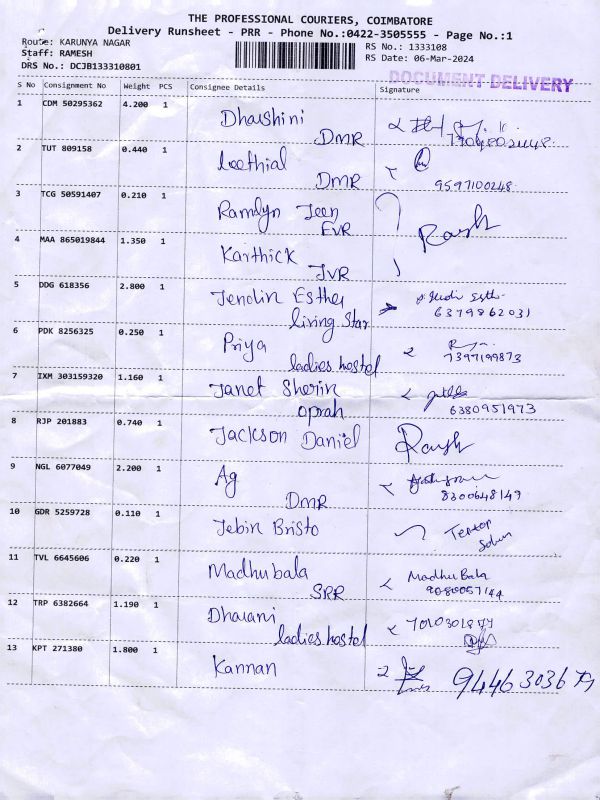 THE PROFESSIONAL COURIERS, COIMBATORE
Delivery Runsheet - PRR - Phone No.:0422-3505555 - Page No.:1
Route: KARUNYA NAGAR
Staff: RAMESH
DRS No.: DCJB133310801
RS No.: 1333108
RS Date: 06-Mar-2024
DOCUMENT DELIVERY
S No Consignment No Weight PCS Consignee Details Signature
1 CDM 50295362 4.200 1 Dharshini
DMR
2 TUT 809158 0.440 1
DMR
9597100248
3 TCG 50591407 0.210 1 Ramlyn Jeen
EVR
4 MAA 865019844 1.350 1 Karthick
JVR
5 DDG 618356 2.800 1 Jenolin Esther
living Star 6379862031
6 PDK 8256325 0.250 1 Priya
ladies hostel 7397199873
7 IXM 303159320 1.160 1 Janet Sherin
oprah 6380951973
8 RJP 201883 0.740 1 Jackson Daniel
9 NGL 6077049 2.200 1 Ag
DMR 8300648149
10 GDR 5259728 0.110 1 Jebin Bristo
11 TVL 6645606 0.220 1 Madhubala MadhuBala
SRR
12 TRP 6382664 1.190 1 Dharani
ladies hostel
13 KPT 271380 1.800 1 Kannan